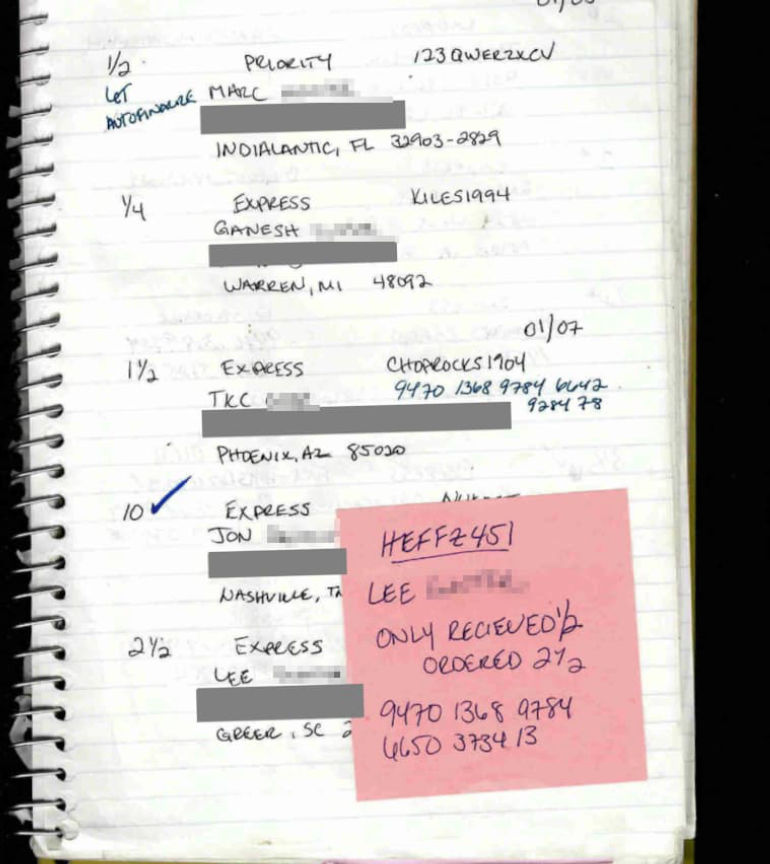 1/2 PRIORITY 123QWERZXCV
LET MARC
AUTOFINALIZE
INDIALANTIC, FL 32903-2829
1/4 EXPRESS KILES1994
GANESH
WARREN, MI 48092
01/07
1 1/2 EXPRESS CHOPROCKS1904
TKC 9470 1368 9784 6642
9284 78
PHOENIX, AZ 85020
10 ✓ EXPRESS
JON
NASHVILLE, TN
2 1/2 EXPRESS
LEE
GREER, SC 2
HEFFZ451
LEE
ONLY RECIEVED 1/2
ORDERED 2 1/2
9470 1368 9784
6650 3734 13